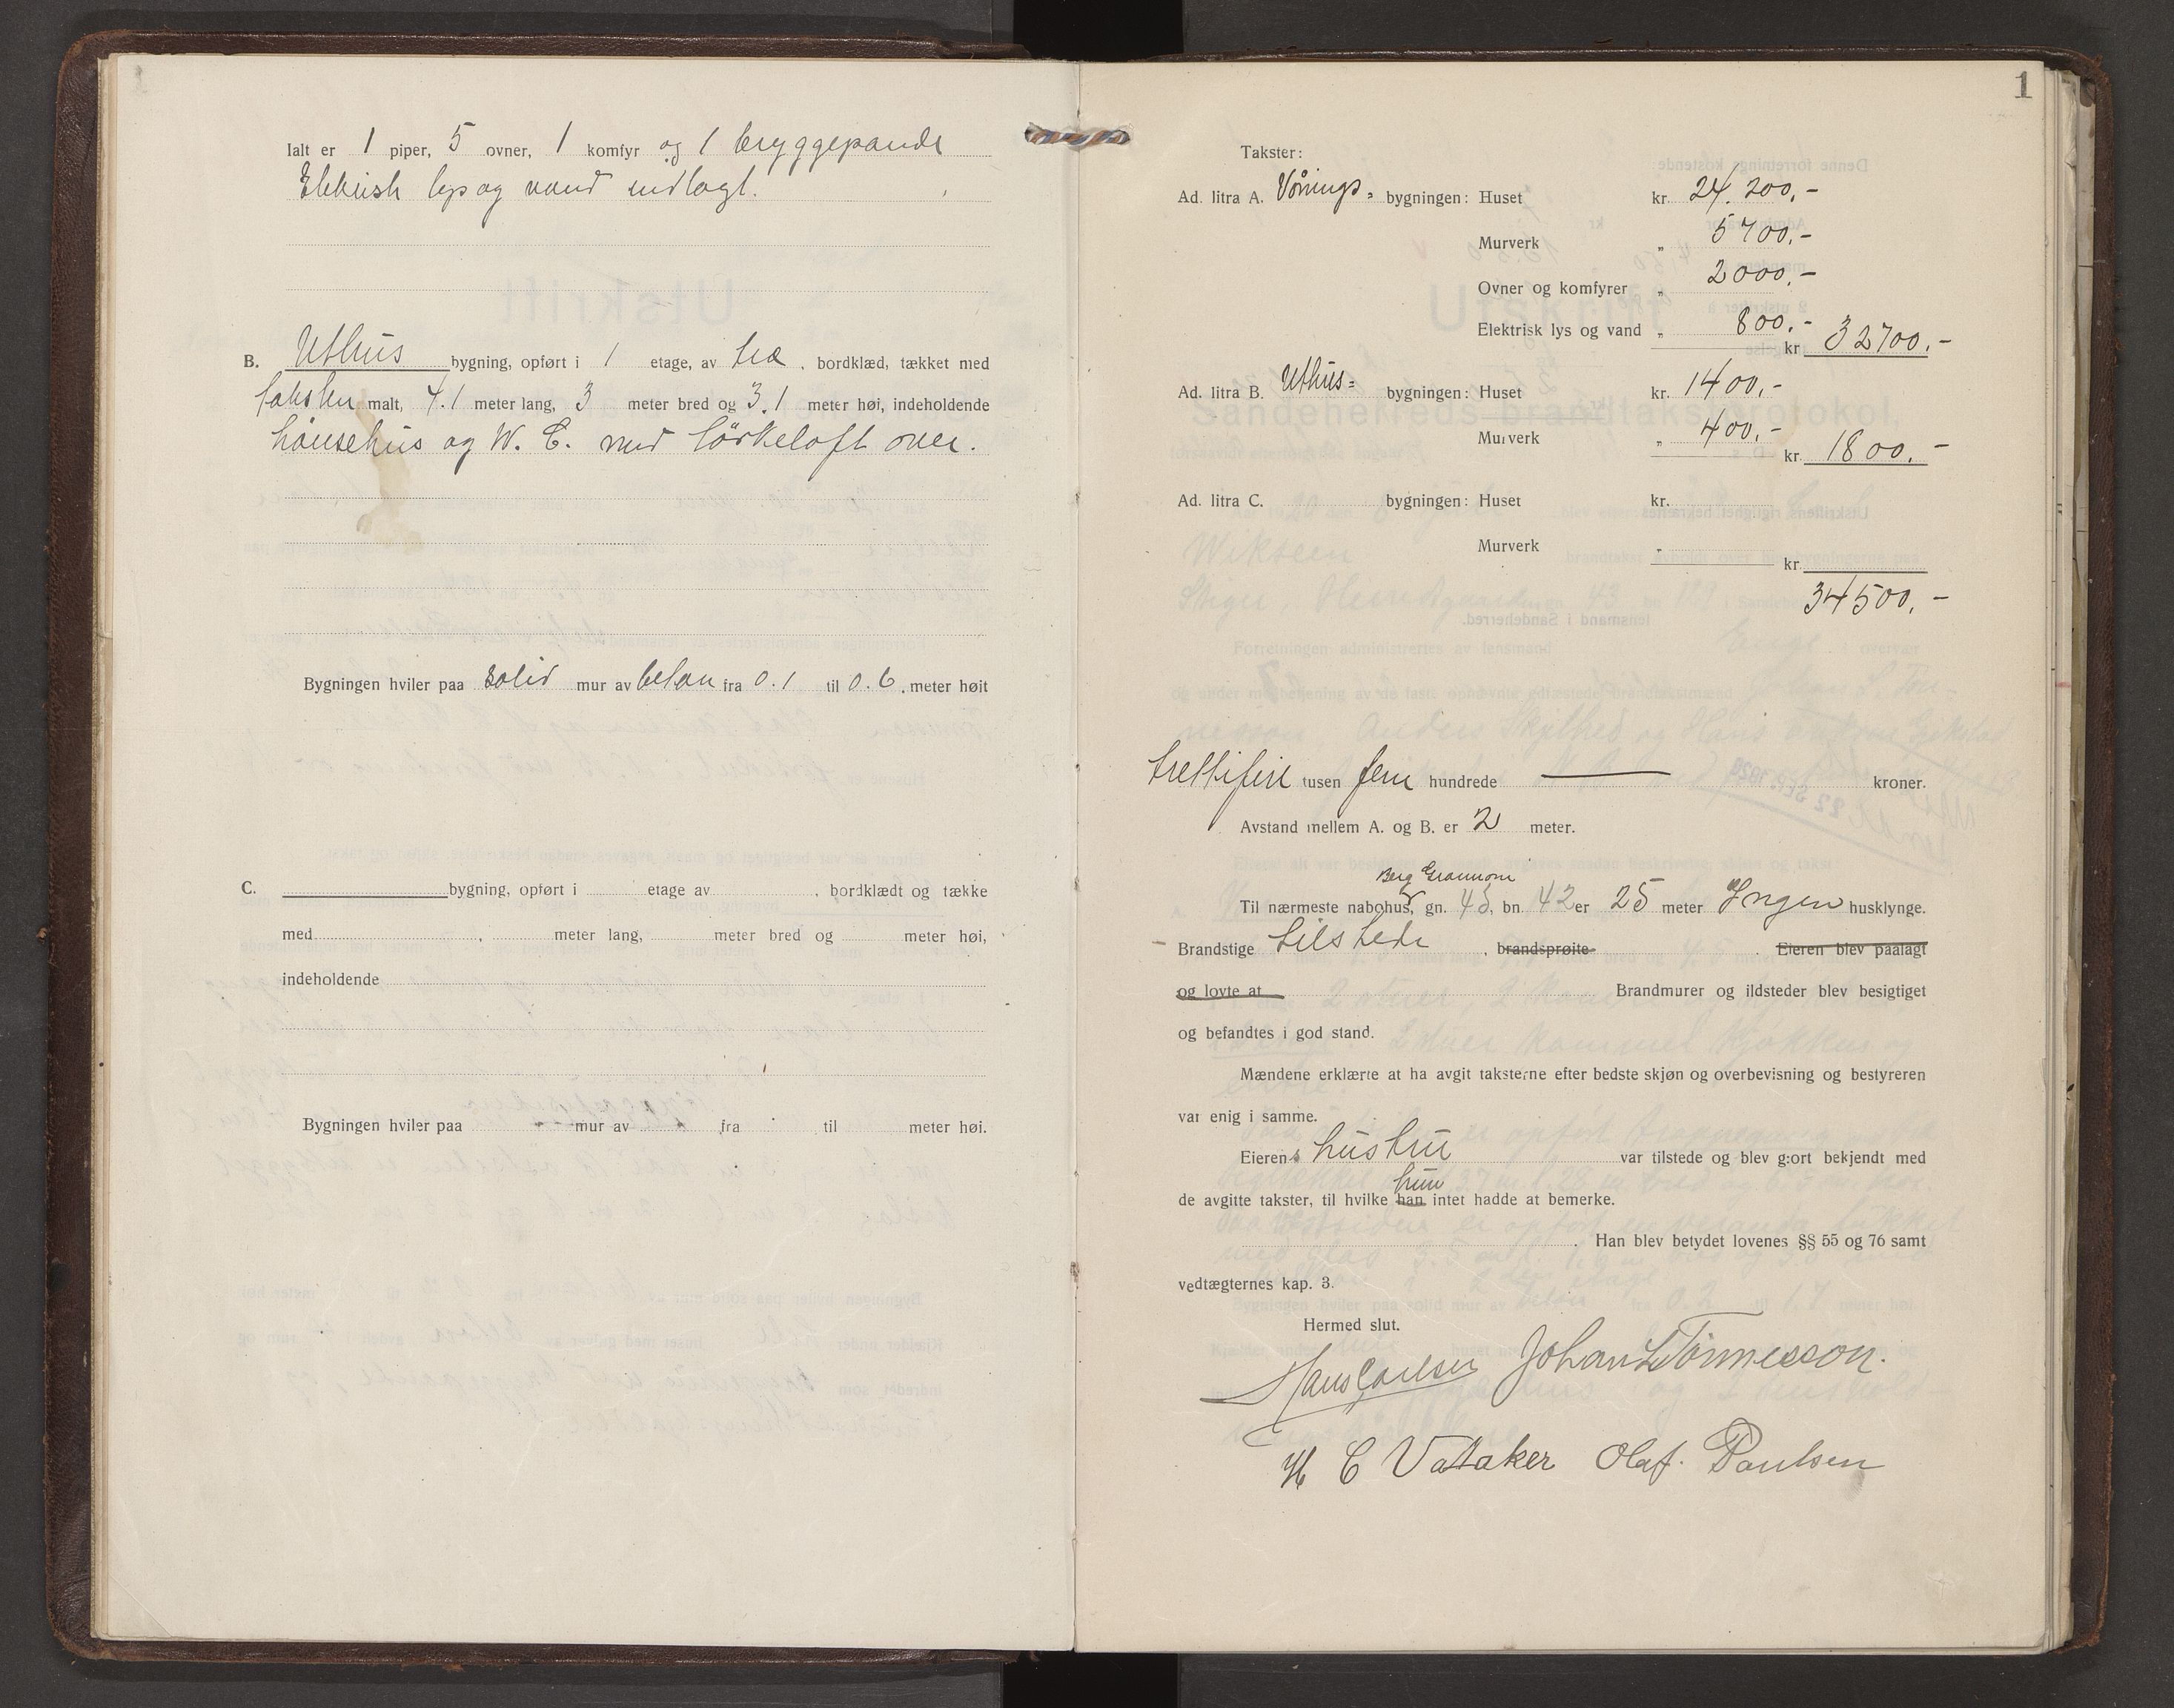 Ialt er 1 piper, 5 ovner, 1 komfyr og 1 bryggepande
Elektrisk lys og vand indlagt.
B. Uthus bygning, opført i 1 etage, av træ, bordklæd, tækket med
taksten malt, 4.1 meter lang, 3 meter bred og 3.1 meter høi, indeholdende
hönsehus og W. C. med törkeloft over.
Bygningen hviler paa solid mur av beton fra 0.1 til 0.6. meter høit
C. bygning, opført i etage av , bordklædt og tække
med , meter lang, meter bred og meter høi,
indeholdende
Bygningen hviler paa mur av fra til meter høi.
1
Takster:
Ad. litra A. Vånings= bygningen: Huset kr. 24.200,-
Murverk „ 5700,-
Ovner og komfyrer „ 2000,-
Elektrisk lys og vand „ 800,- kr. 32700,-
Ad. litra B. Uthus= bygningen: Huset kr. 1400,-
Murverk „ 400,- kr. 1800,-
Ad. litra C. bygningen: Huset kr.
Murverk „
kr.
34500,-
trettifire tusen fem hundrede — kroner.
Avstand mellem A. og B. er 2 meter.
Berg Grannom
Til nærmeste nabohus, gn. 43, bn. 42 er 25 meter Ingen husklynge.
Brandstige tilstede, brandsprøite . Eieren blev paalagt
og lovte at Brandmurer og ildsteder blev besigtiget
og befandtes i god stand.
Mændene erklærte at ha avgit taksterne efter bedste skjøn og overbevisning og bestyreren
var enig i samme.
Eierens hustru var tilstede og blev gjort bekjendt med
hun
de avgitte takster, til hvilke han intet hadde at bemerke.
. Han blev betydet lovenes §§ 55 og 76 samt
vedtægternes kap. 3.
Hermed slut.
Hans Carlsen Johan L Tönnesson.
H C Vataker Olaf. Paulsen